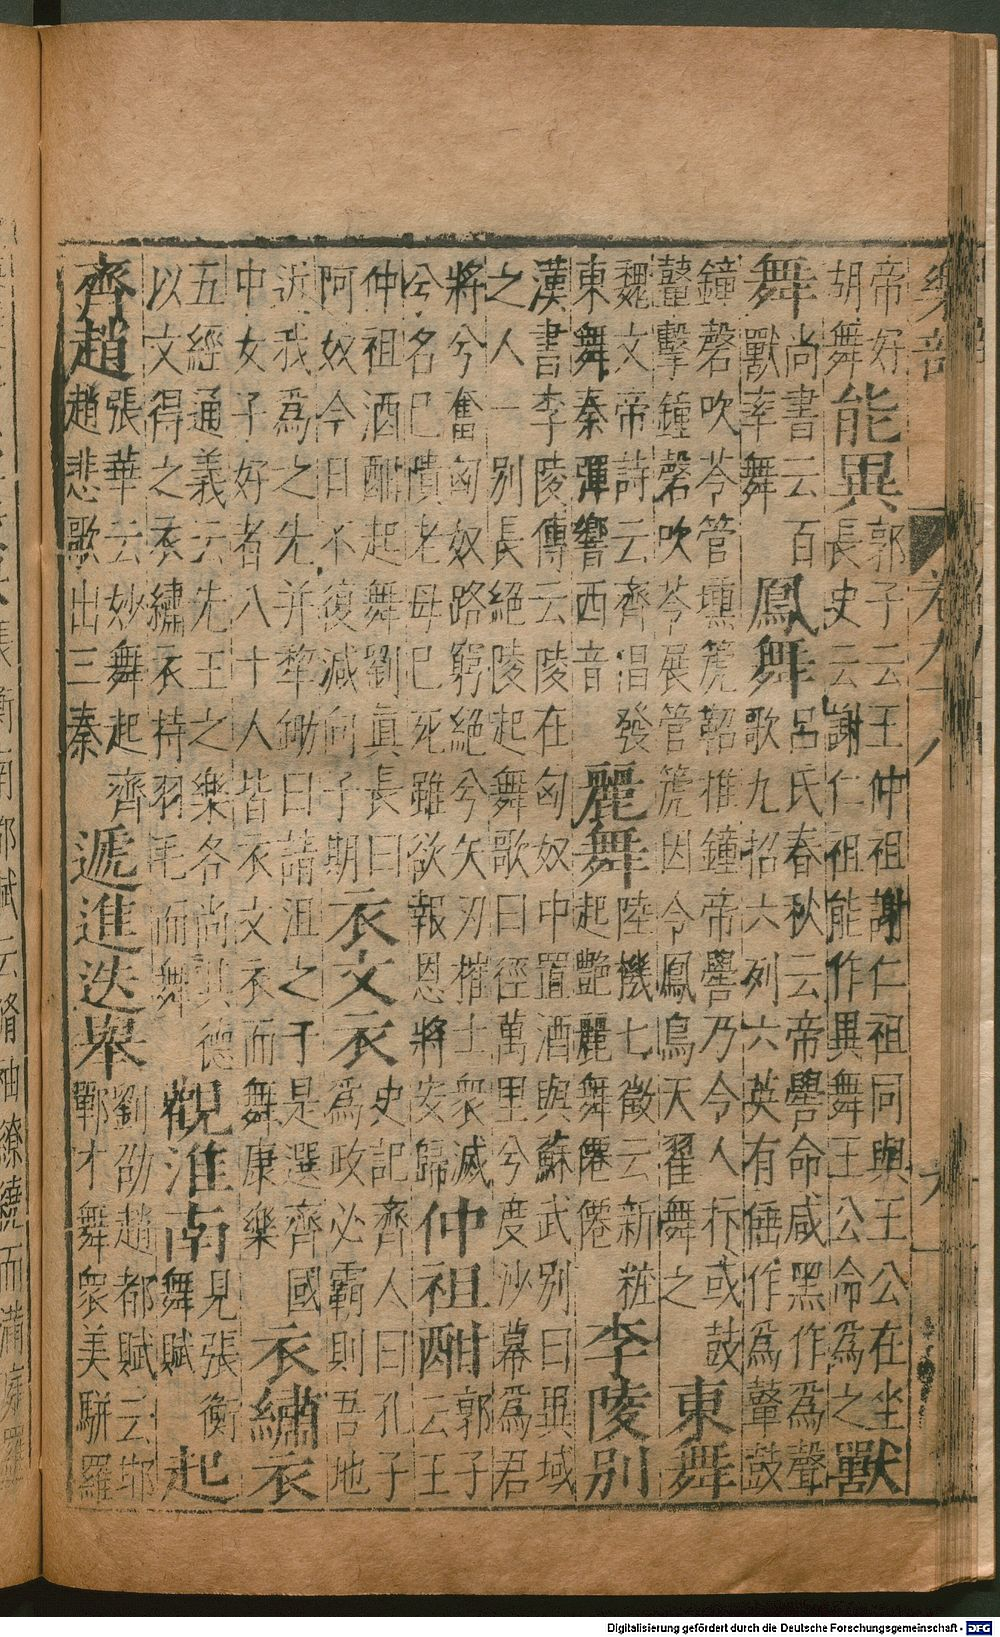 樂部
九
帝好
胡舞
能異
郭子云王仲祖謝仁祖同與王公在坐
長史云謝仁祖能作異舞王公命為之
獸
舞
尚書云百
獸率舞
鳳舞
呂氏春秋云帝嚳命咸黑作為聲
歌九招六列六英有倕作為鼙鼓
鐘磬吹苓管壎箎鞀椎鐘帝嚳乃令人抃或鼓
鼙擊鐘磬吹苓展管箎因令鳳鳥天翟舞之
東舞
魏文帝詩云齊倡發
東舞秦彈響西音
麗舞
陸機七徵云新粧
起艷麗舞僊僊
李陵別
漢書李陵傳云陵在匈奴中置酒與蘇武別曰異域
之人一別長絕陵起舞歌曰徑萬里兮度沙幕為君
將兮奮匈奴路窮絕兮矢刃摧士衆滅
兮名已憒老母已死雖欲報恩將安歸
仲祖酣
郭子
云王
仲祖酒酣起舞劉眞長曰
阿奴今日不復減向子期
衣文衣
史記齊人曰孔子
為政必霸則吾地
近我為之先并犂鋤曰請沮之于是選齊國
中女子好者八十人皆衣文衣而舞康樂
衣繡衣
五經通義云先王之樂各尚其德
以文得之衣繡衣持羽毛而舞
觀淮南
見張衡
舞賦
起
齊趙
張華云妙舞起齊
趙悲歌出三秦
遞進迭舉
劉劭趙都賦云邯
鄲才舞衆美駢羅
張衡南都賦云脩袖繚繞而滿
Digitalisierung gefördert durch die Deutsche Forschungsgemeinschaft - DFG